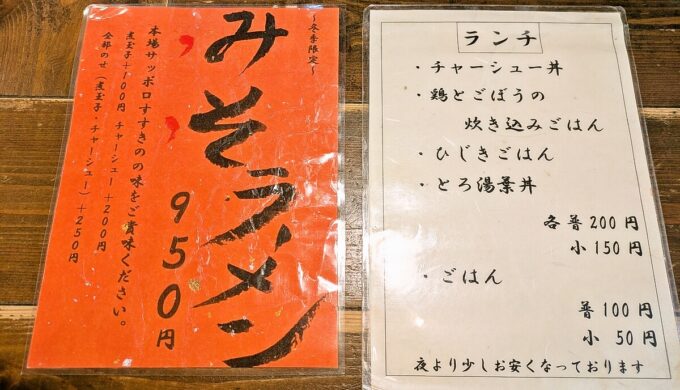 ～冬季限定～
みそラーメン
950円
本場サッポロすすきのの味をご賞味ください。
煮玉子+100円 チャーシュー+200円
全部のせ（煮玉子・チャーシュー）+250円
ランチ
・チャーシュー丼
・鶏とごぼうの
炊き込みごはん
・ひじきごはん
・とろ湯葉丼
各普200円
小150円
・ごはん
普100円
小 50円
夜より少しお安くなっております